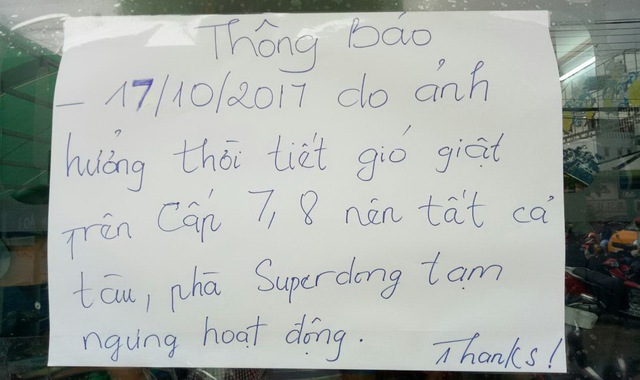 Thông Báo
- 17/10/2017 do ảnh
hưởng thời tiết gió giật
trên cấp 7, 8 nên tất cả
tàu, phà Superdong tạm
ngưng hoạt động.
Thanks!